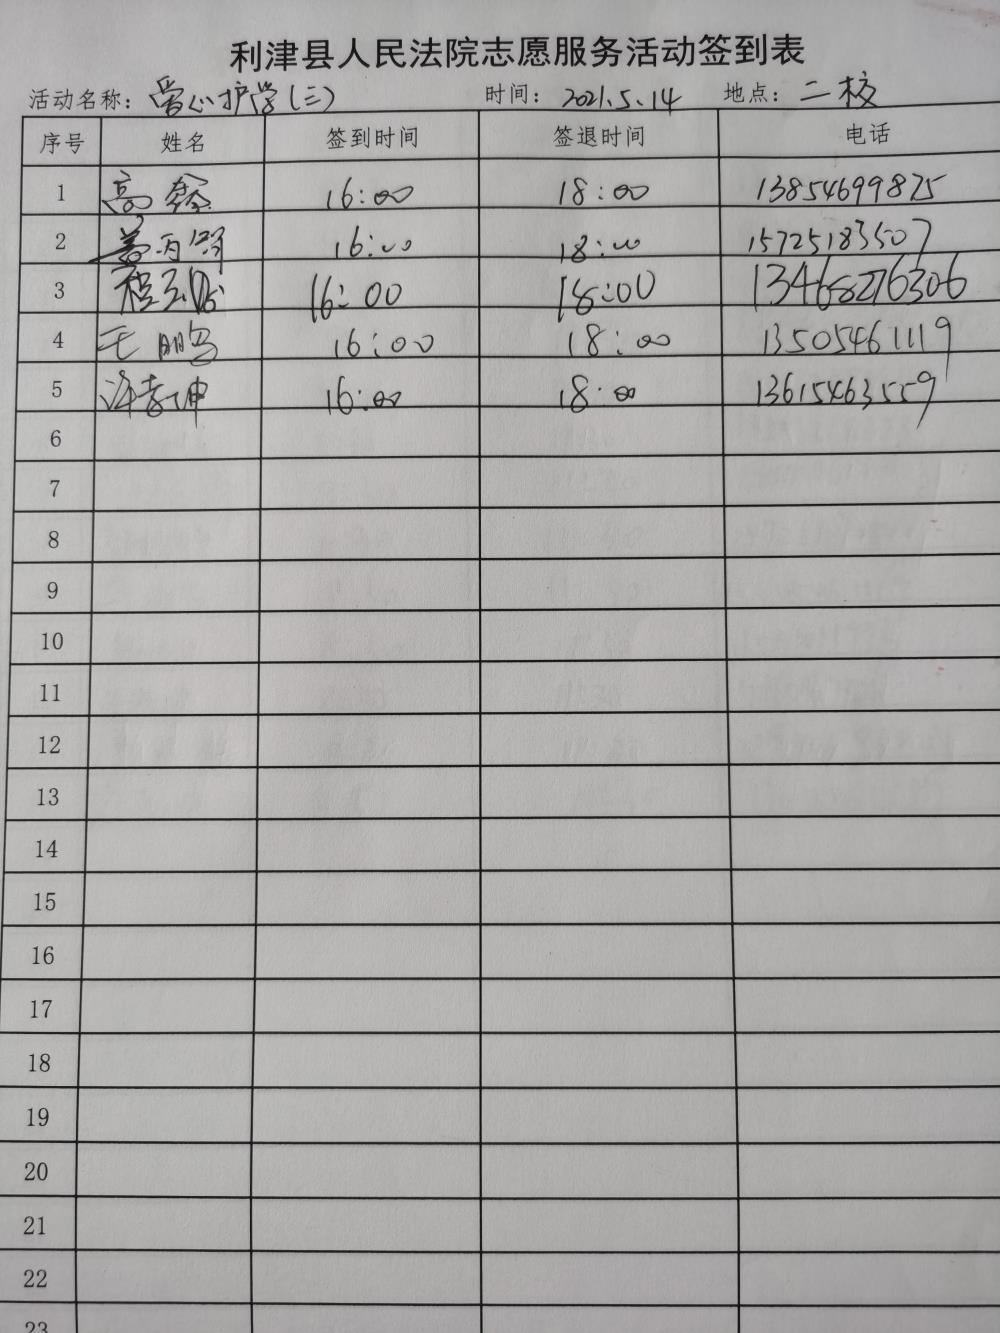 利津县人民法院志愿服务活动签到表
活动名称：爱心护学(三) 时间：2021.5.14 地点：二校
序号 姓名 签到时间 签退时间 电话
1 高鑫 16:00 18:00 13854699875
2 16:00 18:00 15725183507
3 16:00 18:00 13468276306
4 王鹏 16:00 18:00 13505461119
5 许孝坤 16:00 18:00 13615463559
6
7
8
9
10
11
12
13
14
15
16
17
18
19
20
21
22
23